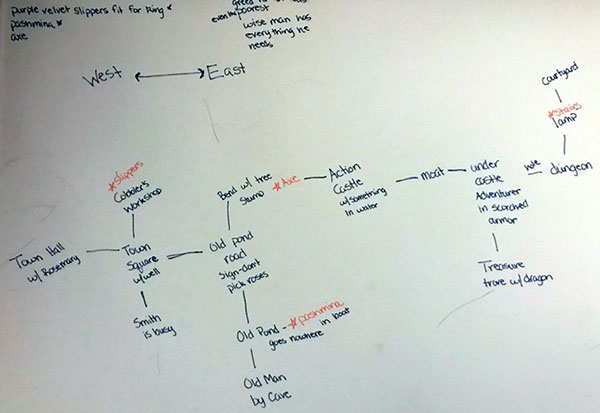 purple velvet slippers fit for king *
pashmina *
axe
even the poorest
wise man has
everything he
needs
West
East
courtyard
*Stairs
lamp
dungeon
hole
under
castle
Adventurer
in scorched
armor
moat
Action
Castle
w/something
in water
*Axe
Bend w/ tree
Stump
*Slippers
Cobbler's
Workshop
Town Hall
w/ Rosemary
Town
Square
w/well
Old pond
road
sign-dont
pick roses
Treasure
trove w/dragon
Smith
is busy
Old Pond - *pashmina
goes nowhere in boat
Old Man
by Cave